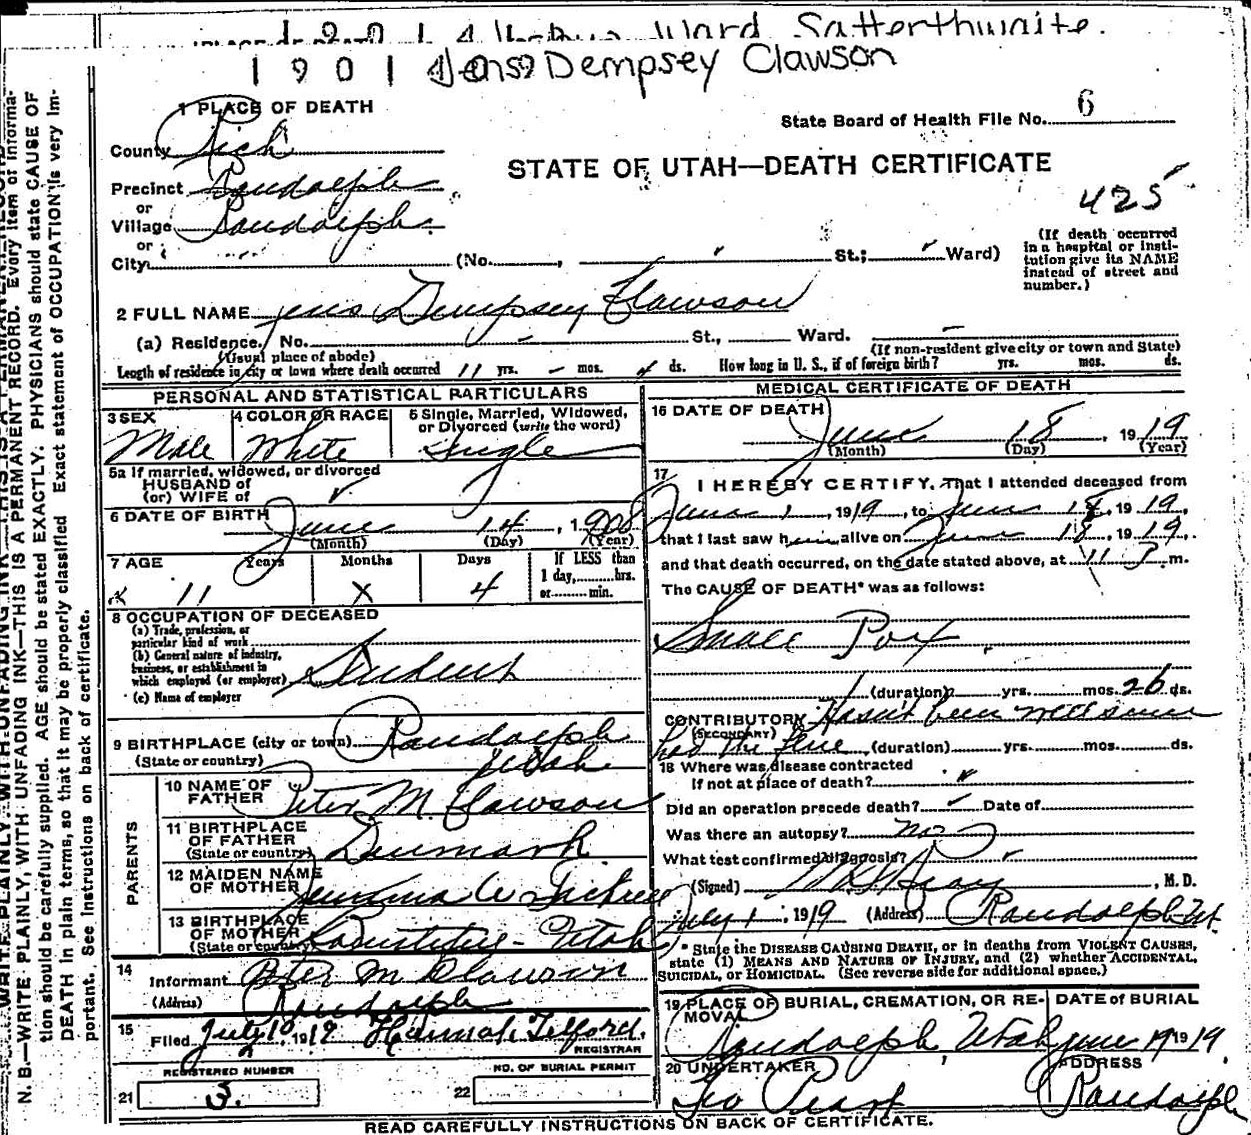 Ward Satterthwaite.
1 9 0 1 4 Jens Dempsey Clawson
1 PLACE OF DEATH
State Board of Health File No. 6
County Rich
STATE OF UTAH—DEATH CERTIFICATE
Precinct Randolph
425
or
Village Randolph
or
City (No. , St.; Ward)
(If death occurred in a hospital or insti-
tution give its NAME
instead of street and
number.)
2 FULL NAME Jens Dempsey Clawson
(a) Residence. No. St., Ward.
(Usual place of abode) (If non-resident give city or town and State)
Length of residence in city or town where death occurred 11 yrs. - mos. 4 ds. How long in U. S., if of foreign birth? yrs. mos. ds.
PERSONAL AND STATISTICAL PARTICULARS
3 SEX
Male
4 COLOR OR RACE
White
5 Single, Married, Widowed,
or Divorced (write the word)
Single
5a If married, widowed, or divorced
HUSBAND of
(or) WIFE of
6 DATE OF BIRTH June 14, 1908
(Month) (Day) (Year)
7 AGE Years Months Days
11 X 4
If LESS than
1 day, hrs.
or min.
8 OCCUPATION OF DECEASED
(a) Trade, profession, or
particular kind of work
(b) General nature of industry,
business, or establishment in
which employed (or employer) Student
(c) Name of employer
9 BIRTHPLACE (city or town) Randolph
(State or country) Utah
PARENTS
10 NAME OF
FATHER Peter M Clawson
11 BIRTHPLACE
OF FATHER
(State or country) Denmark
12 MAIDEN NAME
OF MOTHER Jemima
13 BIRTHPLACE
OF MOTHER
(State or country) Utah
14
Informant Peter M Clawson
(Address) Randolph
15
Filed July 10, 1919 Hannah Telford.
REGISTRAR
REGISTERED NUMBER
21 5.
NO. OF BURIAL PERMIT
22
MEDICAL CERTIFICATE OF DEATH
16 DATE OF DEATH
June 18, 1919
(Month) (Day) (Year)
17
I HEREBY CERTIFY, That I attended deceased from
June 1, 1919, to June 18, 1919,
that I last saw him alive on June 18, 1919,
and that death occurred, on the date stated above, at 11 P.m.
The CAUSE OF DEATH* was as follows:
Small Pox
(duration) yrs. mos. 26 ds.
CONTRIBUTORY Hasn't been well since
(SECONDARY)
had the flue (duration) yrs. mos. ds.
18 Where was disease contracted
if not at place of death?
Did an operation precede death? Date of
Was there an autopsy? no
What test confirmed diagnosis?
(Signed) , M. D.
July 1, 1919 (Address) Randolph Ut.
* State the DISEASE CAUSING DEATH, or in deaths from VIOLENT CAUSES,
state (1) MEANS AND NATURE OF INJURY, and (2) whether ACCIDENTAL,
SUICIDAL, or HOMICIDAL. (See reverse side for additional space.)
19 PLACE OF BURIAL, CREMATION, OR RE-
MOVAL
Randolph, Utah
DATE of BURIAL
June 19 1919
20 UNDERTAKER
Geo Peart
ADDRESS
Randolph
READ CAREFULLY INSTRUCTIONS ON BACK OF CERTIFICATE.
N. B.—WRITE PLAINLY, WITH UNFADING INK—THIS IS A PERMANENT RECORD. Every item of informa-
tion should be carefully supplied. AGE should be stated EXACTLY. PHYSICIANS should state CAUSE OF
DEATH in plain terms, so that it may be properly classified. Exact statement of OCCUPATION is very im-
portant. See instructions on back of certificate.